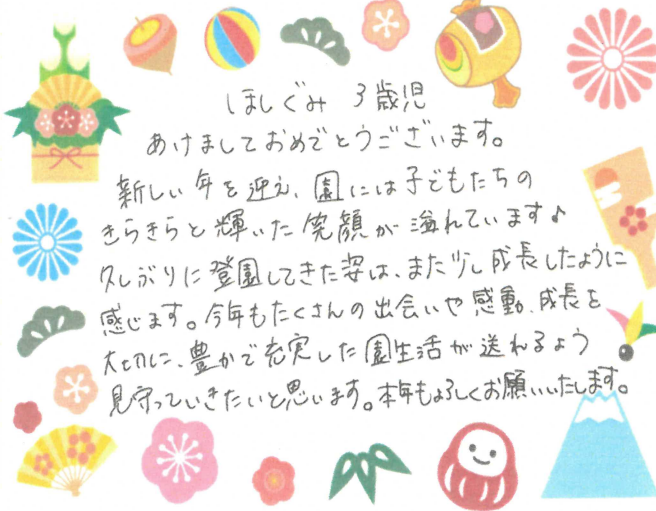 ほしぐみ 3歳児
あけましておめでとうございます。
新しい年を迎え、園には子どもたちの
きらきらと輝いた笑顔が溢れています♪
久しぶりに登園してきた姿は、また少し成長したように
感じます。今年もたくさんの出会いや感動、成長を
大切に、豊かで充実した園生活が送れるよう
見守っていきたいと思います。本年もよろしくお願いいたします。